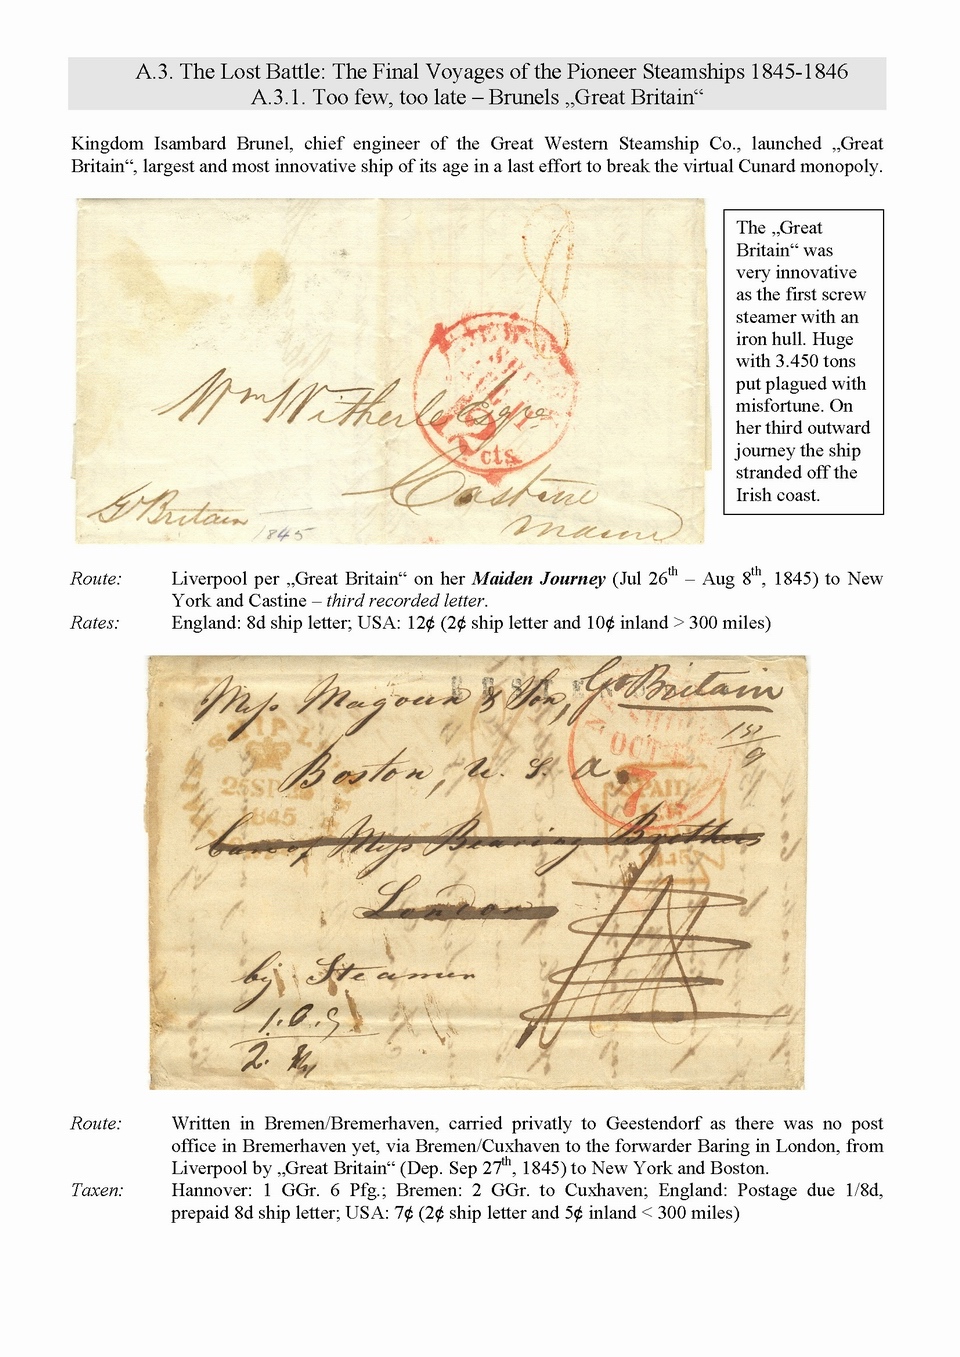 A.3. The Lost Battle: The Final Voyages of the Pioneer Steamships 1845-1846
A.3.1. Too few, too late – Brunels „Great Britain“
Kingdom Isambard Brunel, chief engineer of the Great Western Steamship Co., launched „Great
Britain“, largest and most innovative ship of its age in a last effort to break the virtual Cunard monopoly.
The „Great
Britain“ was
very innovative
as the first screw
steamer with an
iron hull. Huge
with 3.450 tons
put plagued with
misfortune. On
her third outward
journey the ship
stranded off the
Irish coast.
8
cts
Wm Witherle Esqre
Castine
Maine
Gt Britain
1845
Route: Liverpool per „Great Britain“ on her Maiden Journey (Jul 26th – Aug 8th, 1845) to New
York and Castine – third recorded letter.
Rates: England: 8d ship letter; USA: 12¢ (2¢ ship letter and 10¢ inland > 300 miles)
Mess Magoun & Son, Gt Britain
SHIP
OCT
Boston, U. S. A.
25SP
1845
7
PAID
care of Mess Bearing Brothers
1845
London
by Steamer
Route: Written in Bremen/Bremerhaven, carried privatly to Geestendorf as there was no post
office in Bremerhaven yet, via Bremen/Cuxhaven to the forwarder Baring in London, from
Liverpool by „Great Britain“ (Dep. Sep 27th, 1845) to New York and Boston.
Taxen: Hannover: 1 GGr. 6 Pfg.; Bremen: 2 GGr. to Cuxhaven; England: Postage due 1/8d,
prepaid 8d ship letter; USA: 7¢ (2¢ ship letter and 5¢ inland < 300 miles)